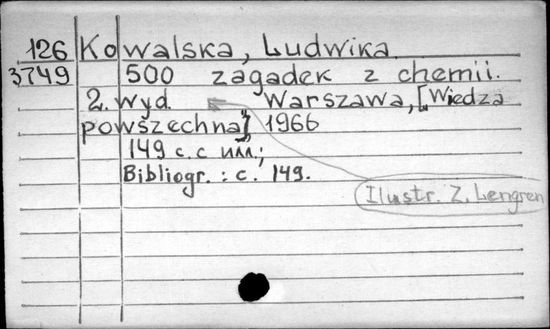 126 Kowalska, Ludwika
3749 500 zagadek z chemii.
2. wyd Warszawa, [Wiedza
powszechna], 1966
149 c. с илл.;
Bibliogr.: с. 149.
Ilustr. Z. Lengren